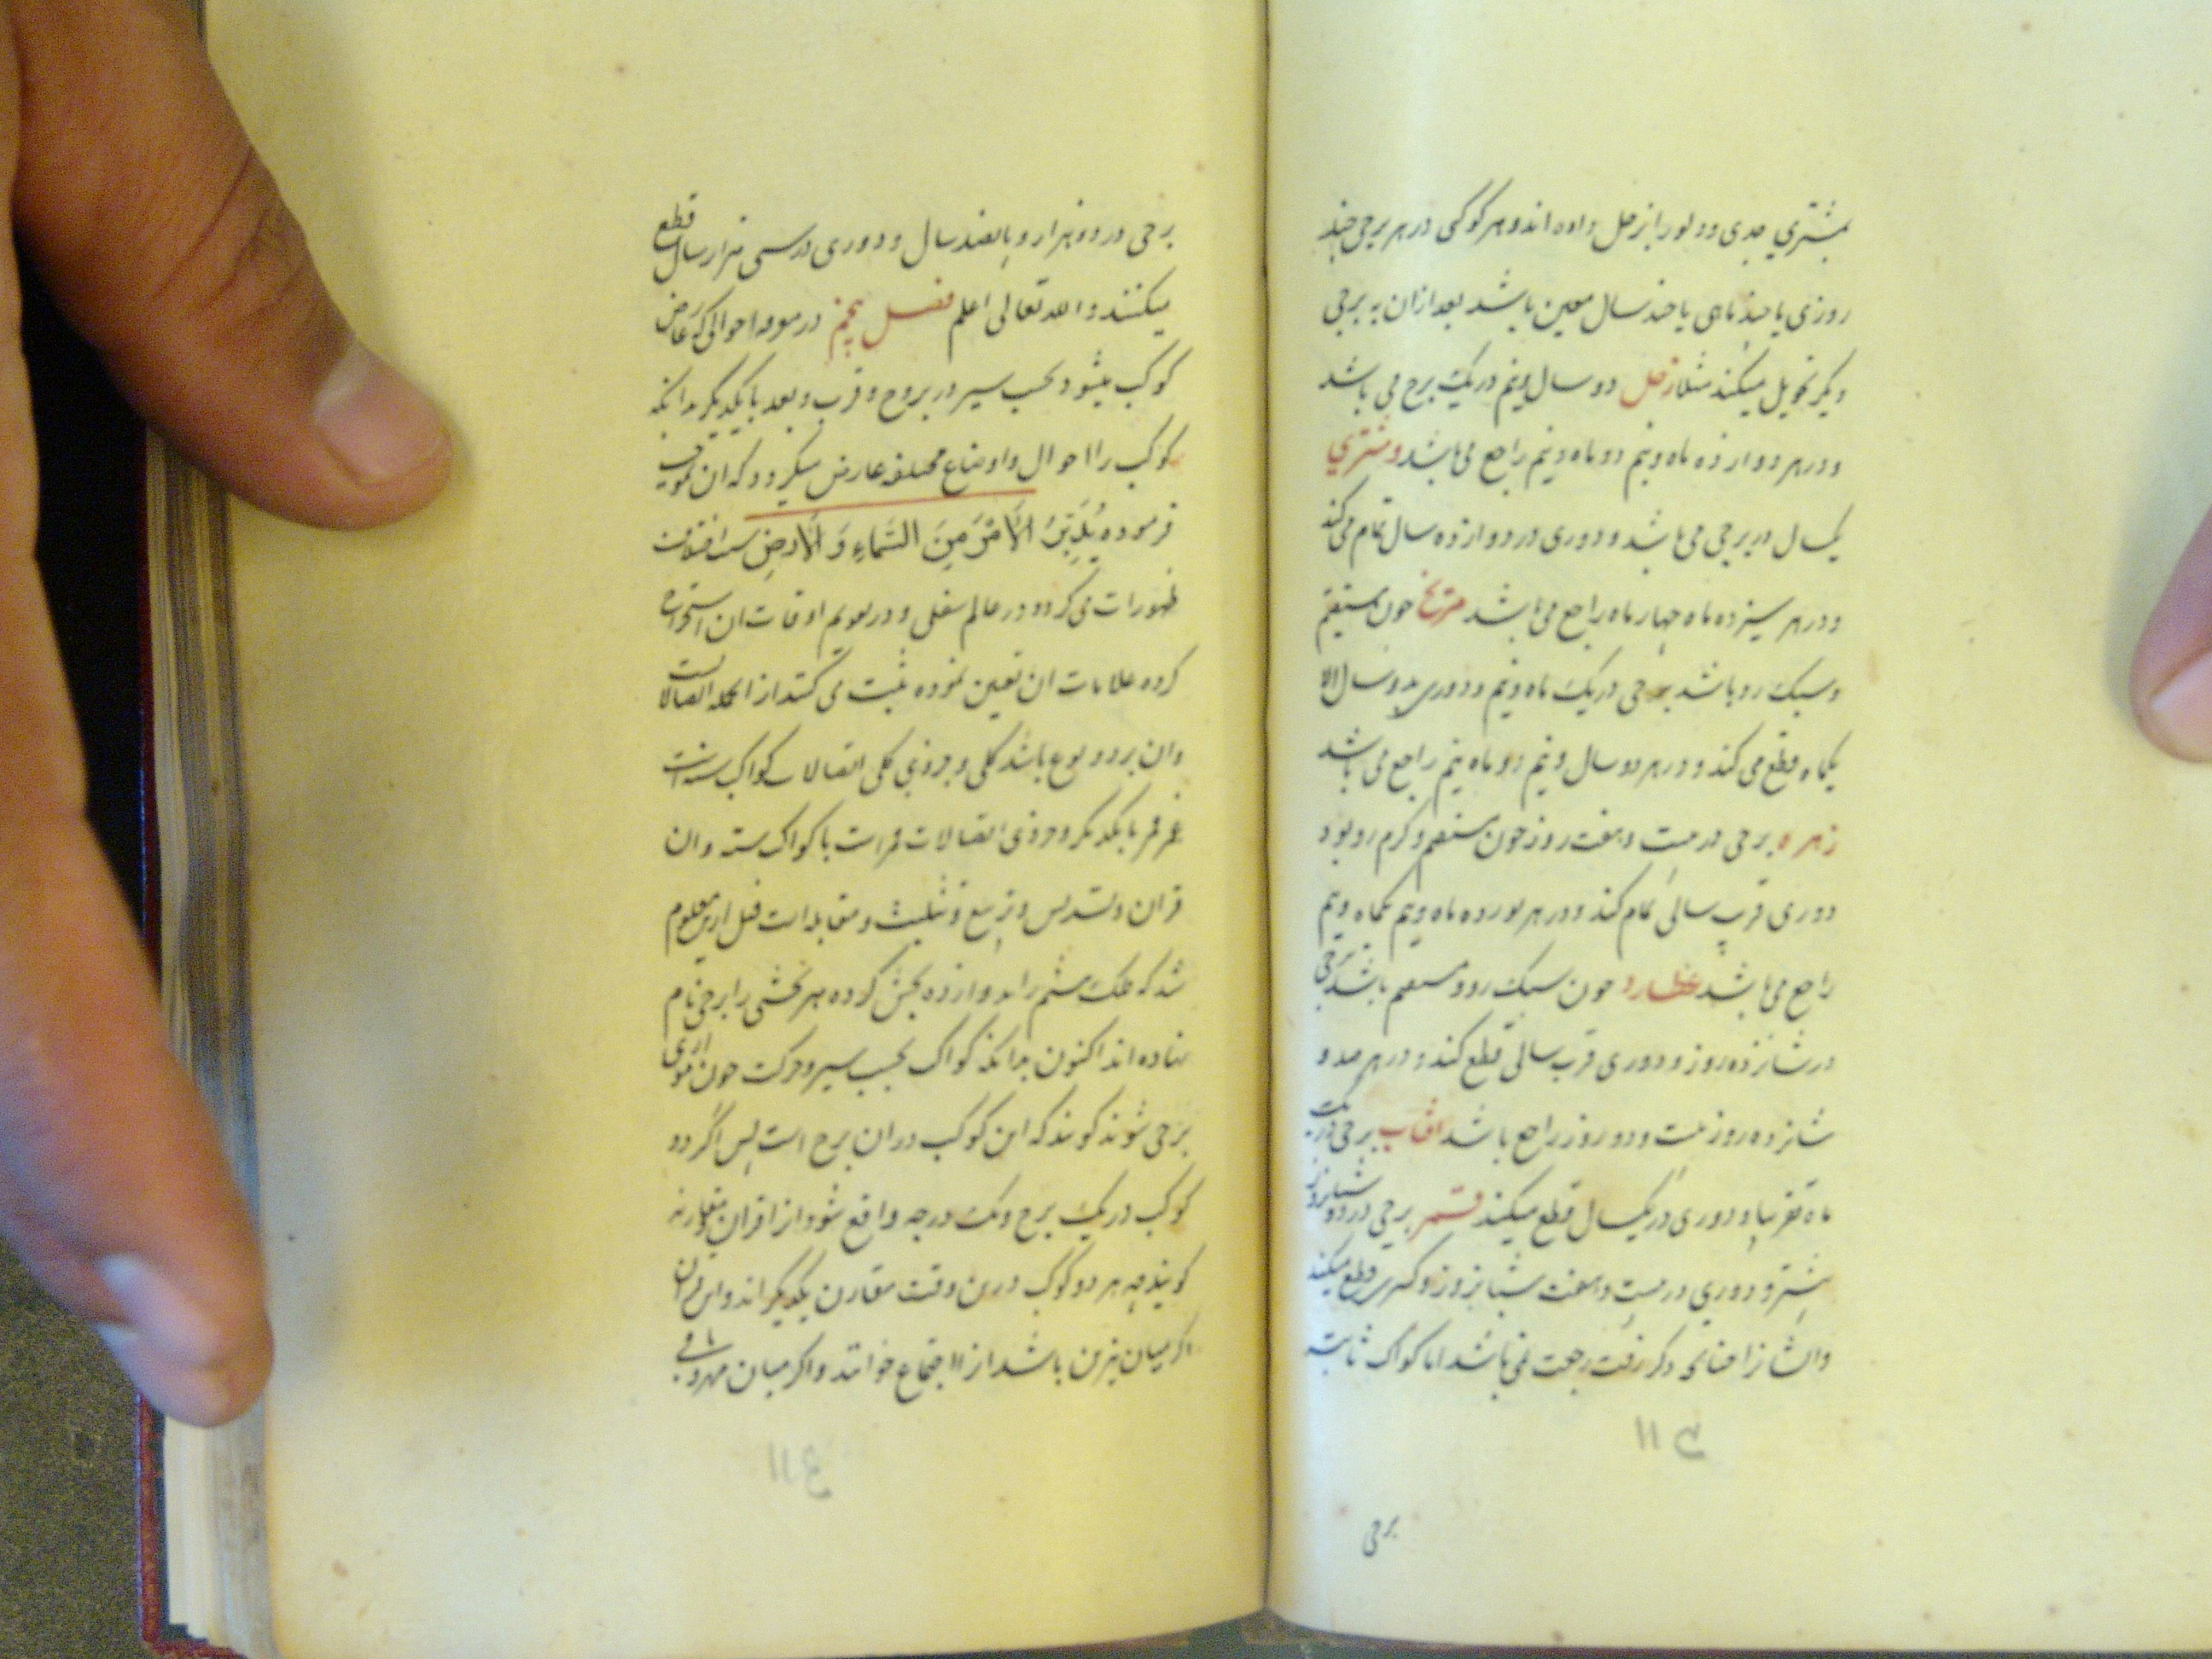 بمشتري جدی و دلو را بزحل داده اند و هر کوکبی در هر برجی چند
روزی یا چند ماهی یا چند سال معین باشد بعد ازان به برجی
دیکر تحویل میکند مثلا زحل دو سال و نیم در یک برج می باشد
و در هر دوازده ماه و نیم دو ماه و نیم راجع می باشد و مشتري
یکسال در برجی می باشد و دوری در دوازده سال تمام می کند
و در هر سیزده ماه چهار ماه راجع می باشد مریخ چون مستقیم
و سبک رو باشد برجی در یک ماه و نیم و دوری بدو سال الا
یکماه قطع می کند و در هر دو سال و نیم دو ماه نیم راجع می باشد
زهره برجی در بیست و هفت روز چون مستقیم و کرم رو بود
دوری قرب سالی تمام کند و در هر نوزده ماه و نیم یکماه و نیم
راجع می باشد عطارد چون سبک رو و مستقیم باشد برجی
در شانزده روز و دوری قرب سالی قطع کند و در هر صد و
شانزده روز بیست و دو روز راجع باشد افتاب برجی در یک
ماه تقریبا و دوری در یکسال قطع میکند قمر برجی در دو شبانروز
بیشتر و دوري در بیست و هفت شبانروز و کسری قطع میکند
و ایشانرا چنانکه ذکر رفت رجعت نمی باشد اما کواکب ثابته
۱۱۳
برجی
برجی در دو هزار و پانصد سال و دوری در سی هزار سال قطع
میکنند و الله تعالی اعلم فصل پنجم در معرفه احوالی که عارض
کوکب میشود بحسب سیر در بروج و قرب و بعد با یکدیگر بدانکه
کوکب را احوال و اوضاع مختلفه عارض میکردد که ان
فرموده یُدَبِّرُ الْاَمْرَ مِنَ السَّمَاءِ وَ الْاَرضِ سبب
ظهورات می کردد در عالم سفلی و در تقویم اوقات ان استخراج
کرده علامات ان تعیین نموده ثبت می کنند از انجمله اتصالات است
و ان بر دو نوع باشد کلی و جزوی کلی اتصالات کواکب سته است
غیر قمر با یکدیکر و جزوی اتصالات قمر است با کواکب سته و ان
قران و تسدیس و تربیع و تثلیث و مقابله است قبل ازین معلوم
شد که فلک هشتم را بدوازده بخش کرده هر بخشی را برجی نام
نهاده اند اکنون بدانکه کواکب بحسب سیر و حرکت چون موازی
برجی شوند کویند که این کوکب در ان برج است پس اگر دو
کوکب در یک برج و یک درجه واقع شود از اقران و مقارنه
کویند چه هر دو کوکب درین وقت مقارن یکدیگر اند و این قران
اکر میان نیرین باشد انرا اجتماع خوانند و اکر میان مهر و باقی
۱۱۴